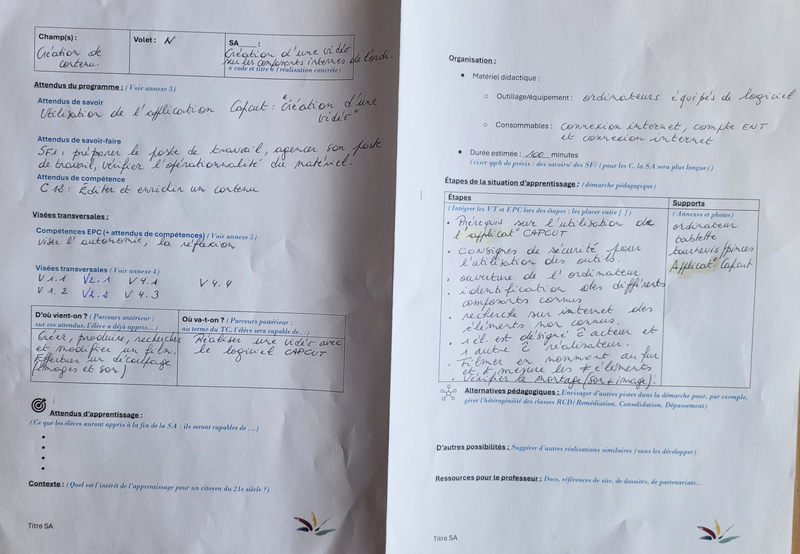 Champ(s) :
Création de
contenu.
Volet : N
SA___ :
Création d'une vidéo
sur les composants internes de l'ordi.
(réalisation concrète)
Attendus du programme : (Voir annexe 3)
Attendus de savoir
Utilisation de l'application Capcut : "Création d'une
vidéo"
Attendus de savoir-faire
SF1 : préparer le poste de travail, agencer son poste
de travail, vérifier l'opérationnalité du matériel.
Attendus de compétence
C12 : Éditer et enrichir un contenu
Visées transversales :
Compétences EPC (+ attendus de compétences) (Voir annexe 5)
viser l'autonomie, la réflexion
Visées transversales (Voir annexe 4)
V 1.1 V2.1 V 4.1 V 4.4
V 1.2 V2.2 V 4.3
D'où vient-on ? (Parcours antérieur :
sur ces attendus, l'élève a déjà appris...)
Créer, produire, rechercher
et modifier un film.
Effectuer un découpage
(images et son)
Où va-t-on ? (Parcours postérieur :
au terme du TC, l'élève sera capable de...)
Réaliser une vidéo avec
le logiciel CAPCUT
Attendus d'apprentissage :
(Ce que les élèves auront appris à la fin de la SA : ils seront capables de ...)
Contexte : (Quel est l'intérêt de l'apprentissage pour un citoyen du 21e siècle ?)
Titre SA
Organisation :
• Matériel didactique :
o Outillage/équipement : ordinateurs équipés de logiciel
o Consommables : connexion internet, compte ENT
et connexion internet
• Durée estimée : 100 minutes
(viser qqch de précis : des savoirs/ des SF/ (pour les C, la SA sera plus longue))
Étapes de la situation d'apprentissage : (démarche pédagogique)
Étapes
(Intégrer les VT et EPC lors des étapes : les placer entre [ ])
• Prérequis sur l'utilisation de
l'applicat° CAPCUT
• consignes de sécurité pour
l'utilisation des outils.
• ouverture de l'ordinateur
• identification des différents
composants connus
• recherche sur internet des
éléments non connus.
• 1 él. est désigné c̄ acteur et
1 autre c̄ réalisateur.
• Filmer en nommant au fur
et à mesure les ≠ éléments
• Vérifier le montage (son + image).
Supports
(Annexes et photos)
ordinateur
tablette
tournevis/pinces
Applicat° Capcut
Alternatives pédagogiques : Envisager d'autres pistes dans la démarche pour, par exemple,
gérer l'hétérogénéité des classes RCD( Remédiation, Consolidation, Dépassement)
D'autres possibilités : Suggérer d'autres réalisations similaires (sans les développer).
Ressources pour le professeur : Docs, références de site, de dossiers, de partenariats...
Titre SA